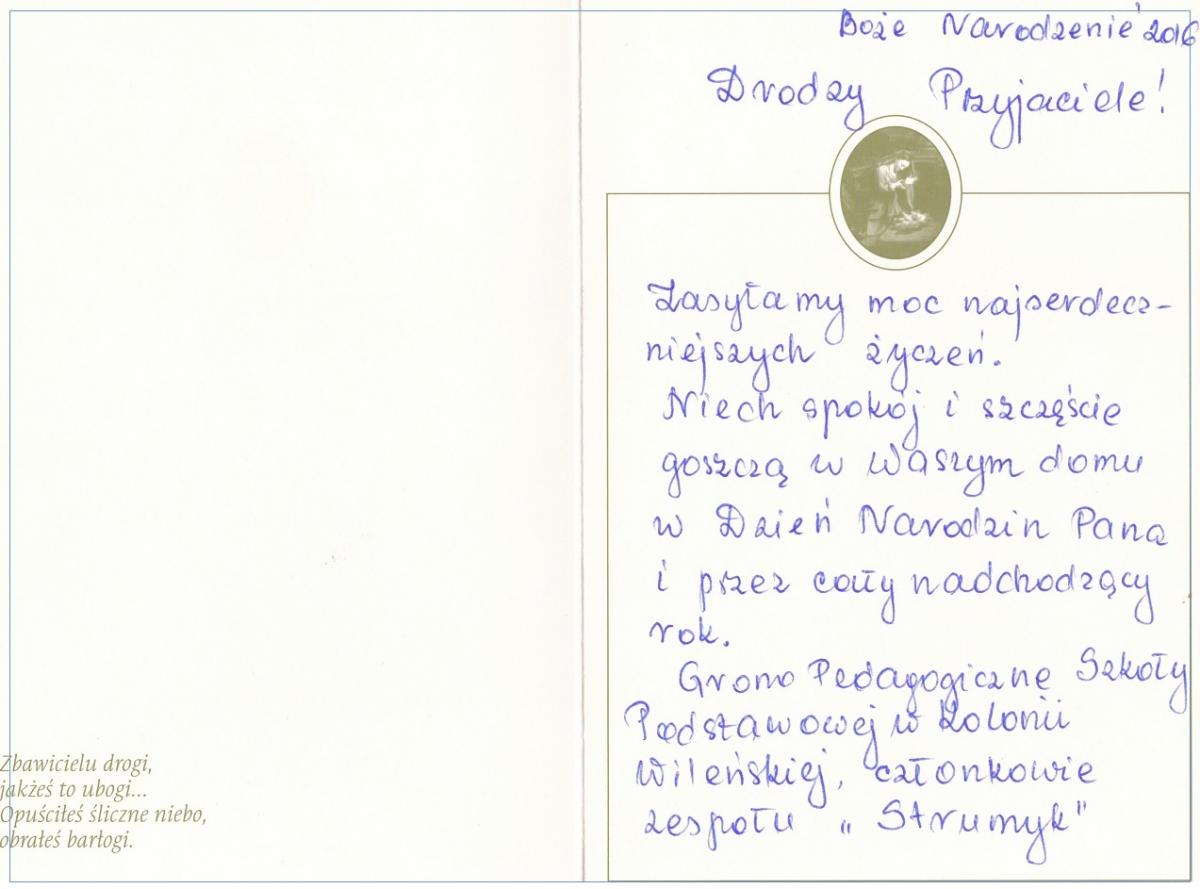 Boże Narodzenie'2016
Drodzy Przyjaciele!
Zasyłamy moc najserdecz-
niejszych życzeń.
Niech spokój i szczęście
goszczą w Waszym domu
w Dzień Narodzin Pana
i przez cały nadchodzący
rok.
Grono Pedagogiczne Szkoły
Podstawowej w Kolonii
Wileńskiej, członkowie
zespołu „Strumyk"
Zbawicielu drogi,
jakżeś to ubogi...
Opuściłeś śliczne niebo,
obrałeś barłogi.